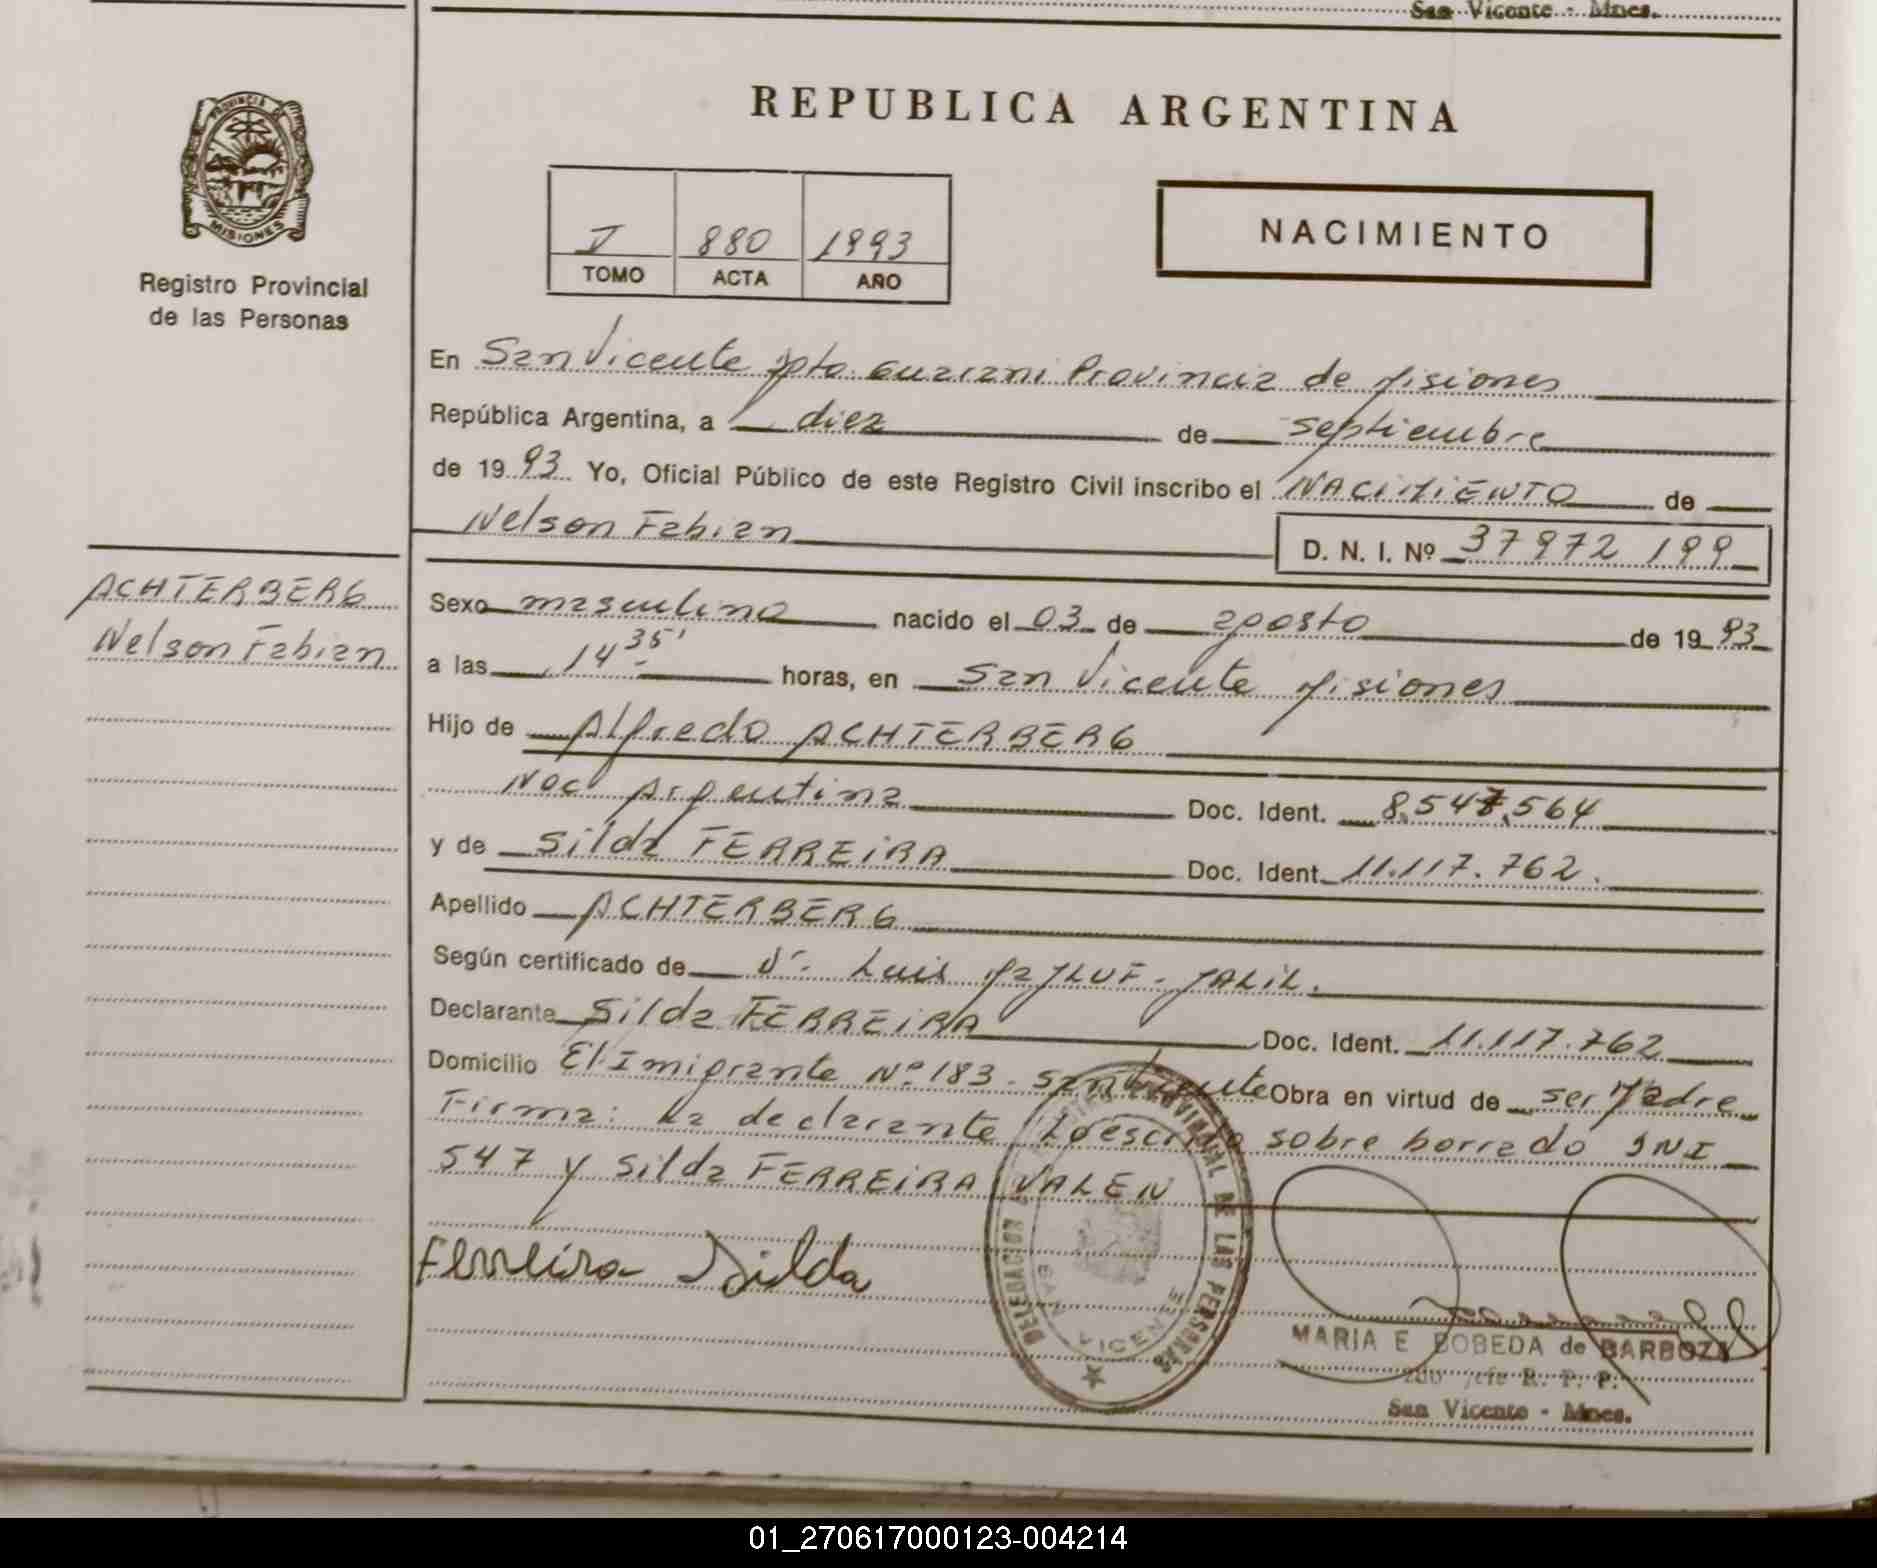 San Vicente - Mnes.
REPUBLICA ARGENTINA
PROVINCIA DE
MISIONES
Registro Provincial
de las Personas
V 880 1993
TOMO ACTA AÑO
NACIMIENTO
En San Vicente Dpto. Guarani Provincia de Misiones
República Argentina, a diez de septiembre
de 1993 Yo, Oficial Público de este Registro Civil inscribo el NACIMIENTO de
Nelson Fabian D. N. I. Nº 37972 199
ACHTERBERG
Nelson Fabian
Sexo masculino nacido el 03 de agosto de 1993
a las 14 35' horas, en San Vicente Misiones
Hijo de Alfredo ACHTERBERG
Nac Argentina Doc. Ident. 8.547.564
y de Silda FERREIRA Doc. Ident. 11.117.762.
Apellido ACHTERBERG
Según certificado de Dr. Luis JALIL.
Declarante Silda FERREIRA Doc. Ident. 11.117.762
Domicilio El Imigrante Nº 183. San Vicente Obra en virtud de ser Madre
Firma: La declarante Lo escrito sobre borrado DNI
547 y Silda FERREIRA VALEN
Ferreira Silda
DELEGACION REGISTRO PROVINCIAL DE LAS PERSONAS
SAN VICENTE
MARIA E BOBEDA de BARBOZA
R. P. P.
San Vicente - Mnes.
01_270617000123-004214